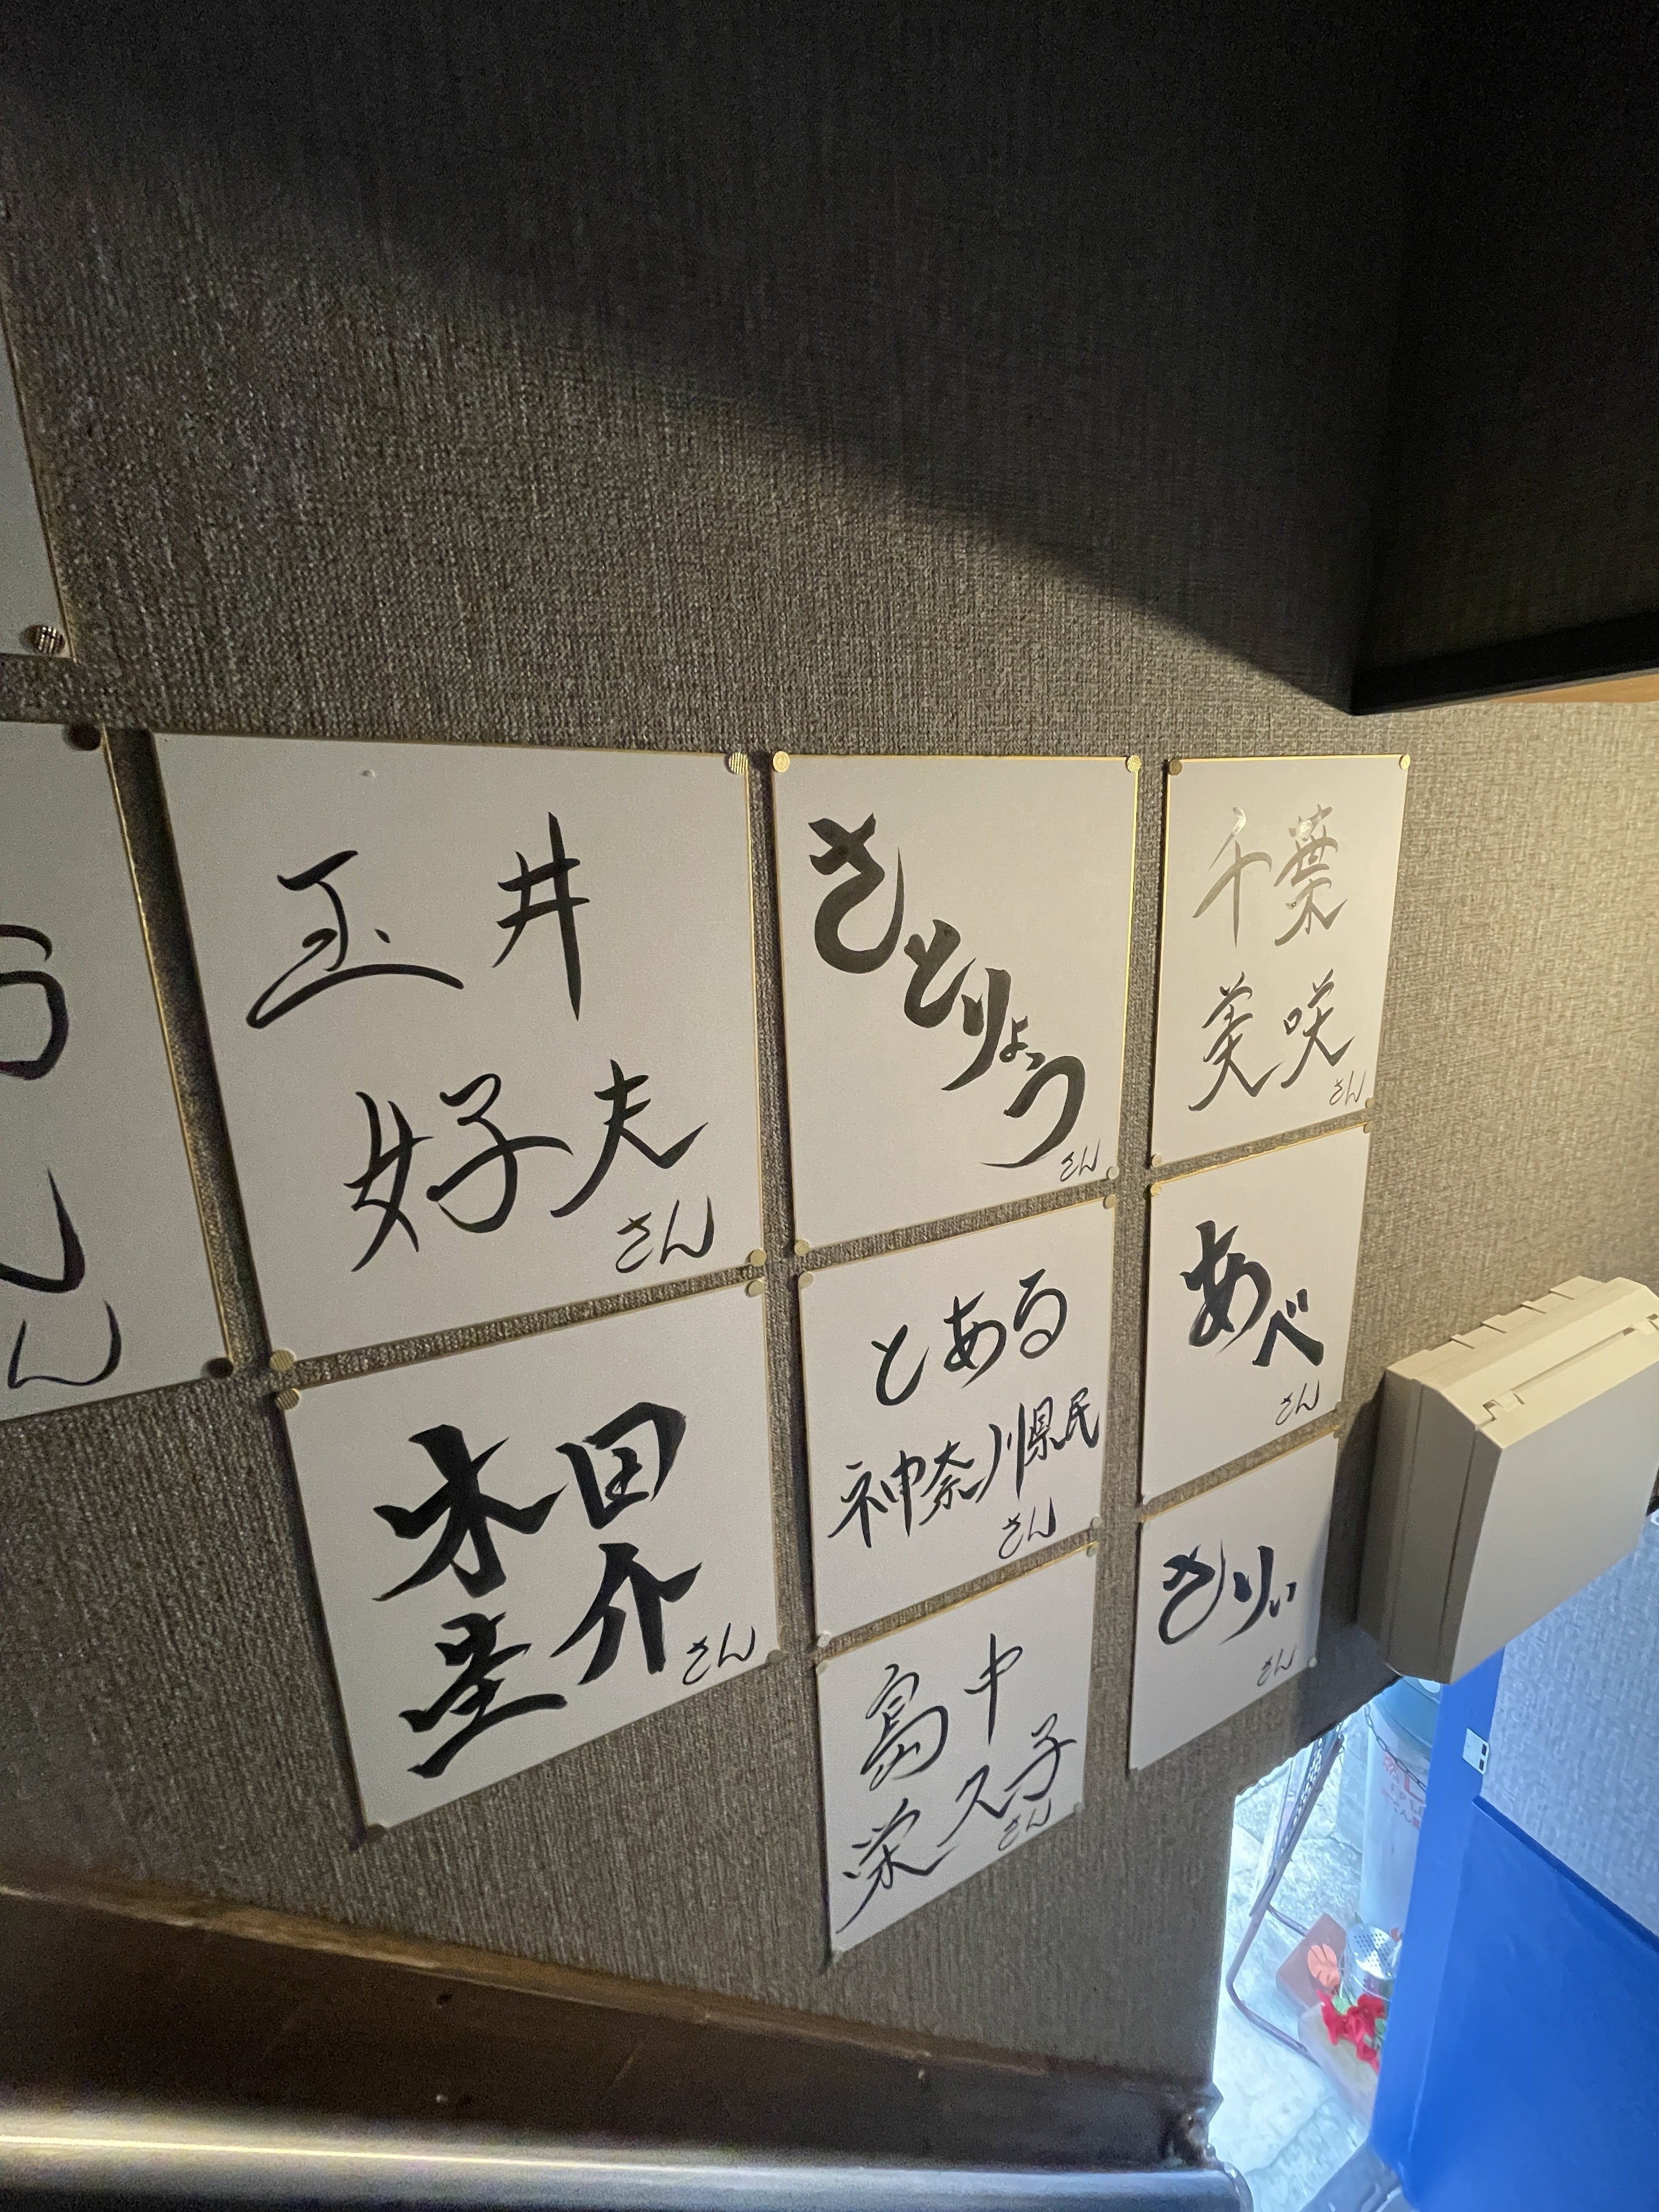 玉井
好夫
さん
木田
圭介
さん
さとりょう
さん
とある
神奈川県民
さん
島中
栄久子
さん
千葉
美咲
さん
あべ
さん
さりぃ
さん